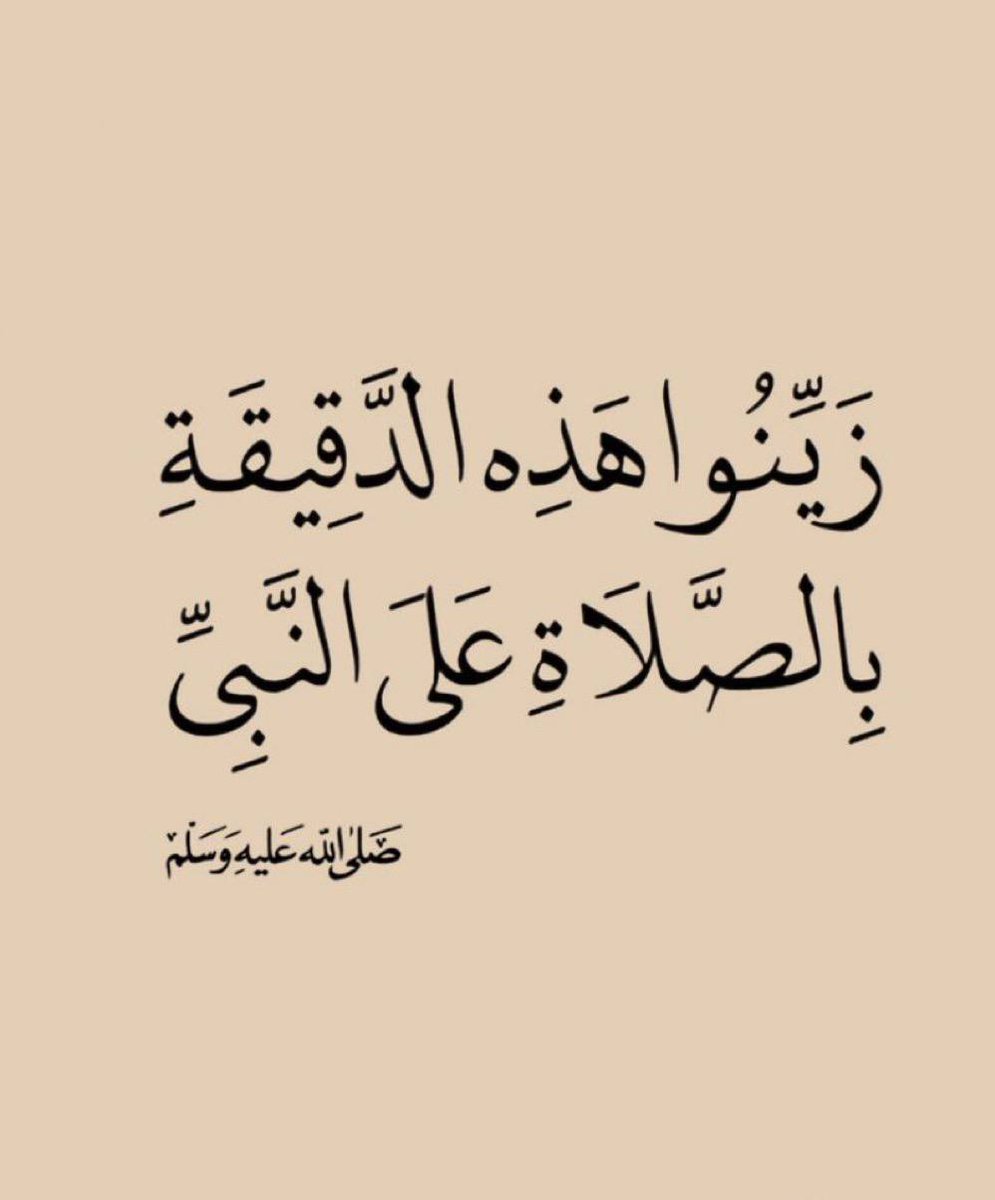 زَيِّنُوا هَذِه الدَّقِيقَةِ
بِالصَّلَاةِ عَلَى النَّبِيِّ
صَلى الله عَليهِ وَسَلم